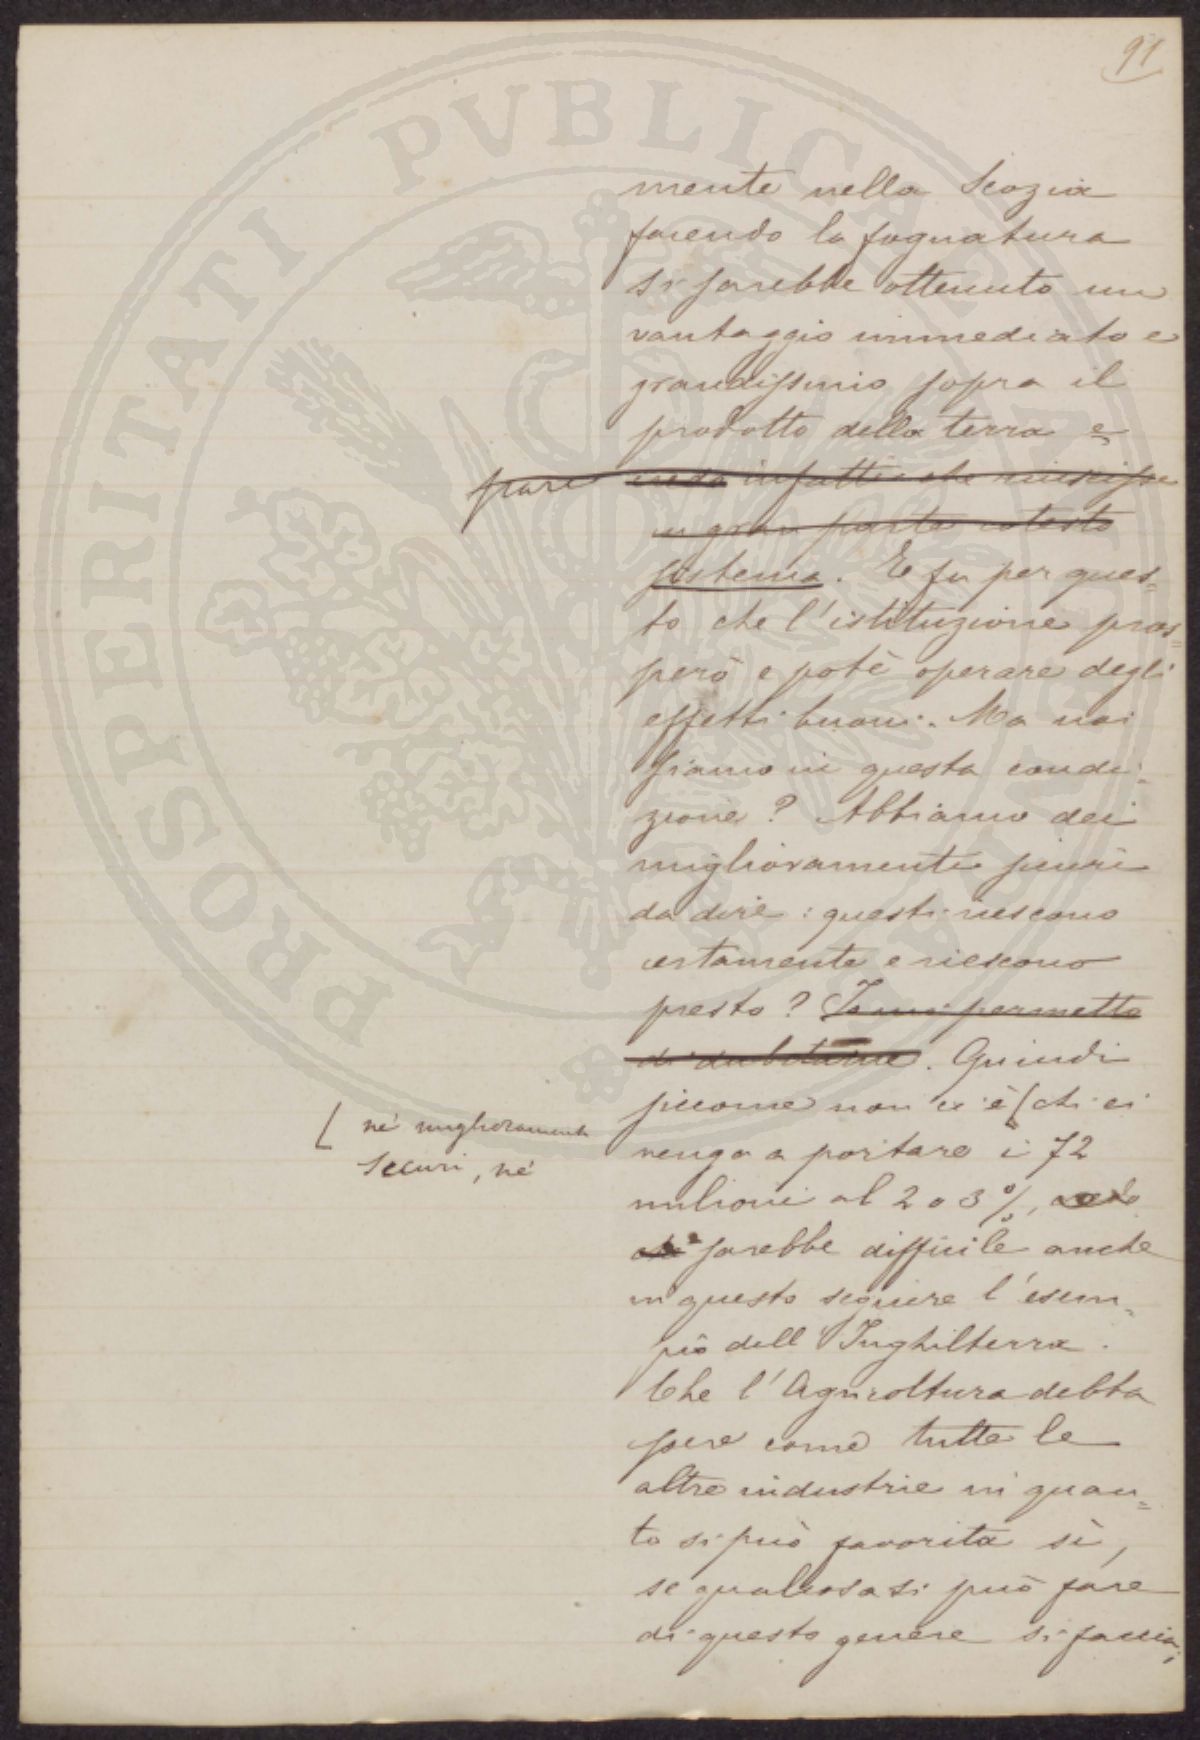 91
PROSPERITATI PVBLICAE
mente nella Scozia
facendo la fognatura
si sarebbe ottenuto un
vantaggio immediato e
grandissimo sopra il
prodotto della terra e
infatti che riuscisse
in gran parte cotesto
sistema. E fu per ques=
to che l'istituzione pros=
però e potè operare degli
effetti buoni. Ma noi
siamo in questa condi=
zione? Abbiamo dei
miglioramenti sicuri
da dire: questi riescono
certamente e riescono
presto? Io mi permetto
di dubitarne. Quindi
siccome non ci è [chi ci
né miglioramenti
securi, né
venga a portare i 72
milioni al 2 o 3%, vedo
che sarebbe difficile anche
in questo seguire l'esem=
pio dell Inghilterra.
Che l'Agricoltura debba
essere come tutte le
altre industrie in quan=
to si può favorita sì,
se qualcosa si può fare
di questo genere si faccia;